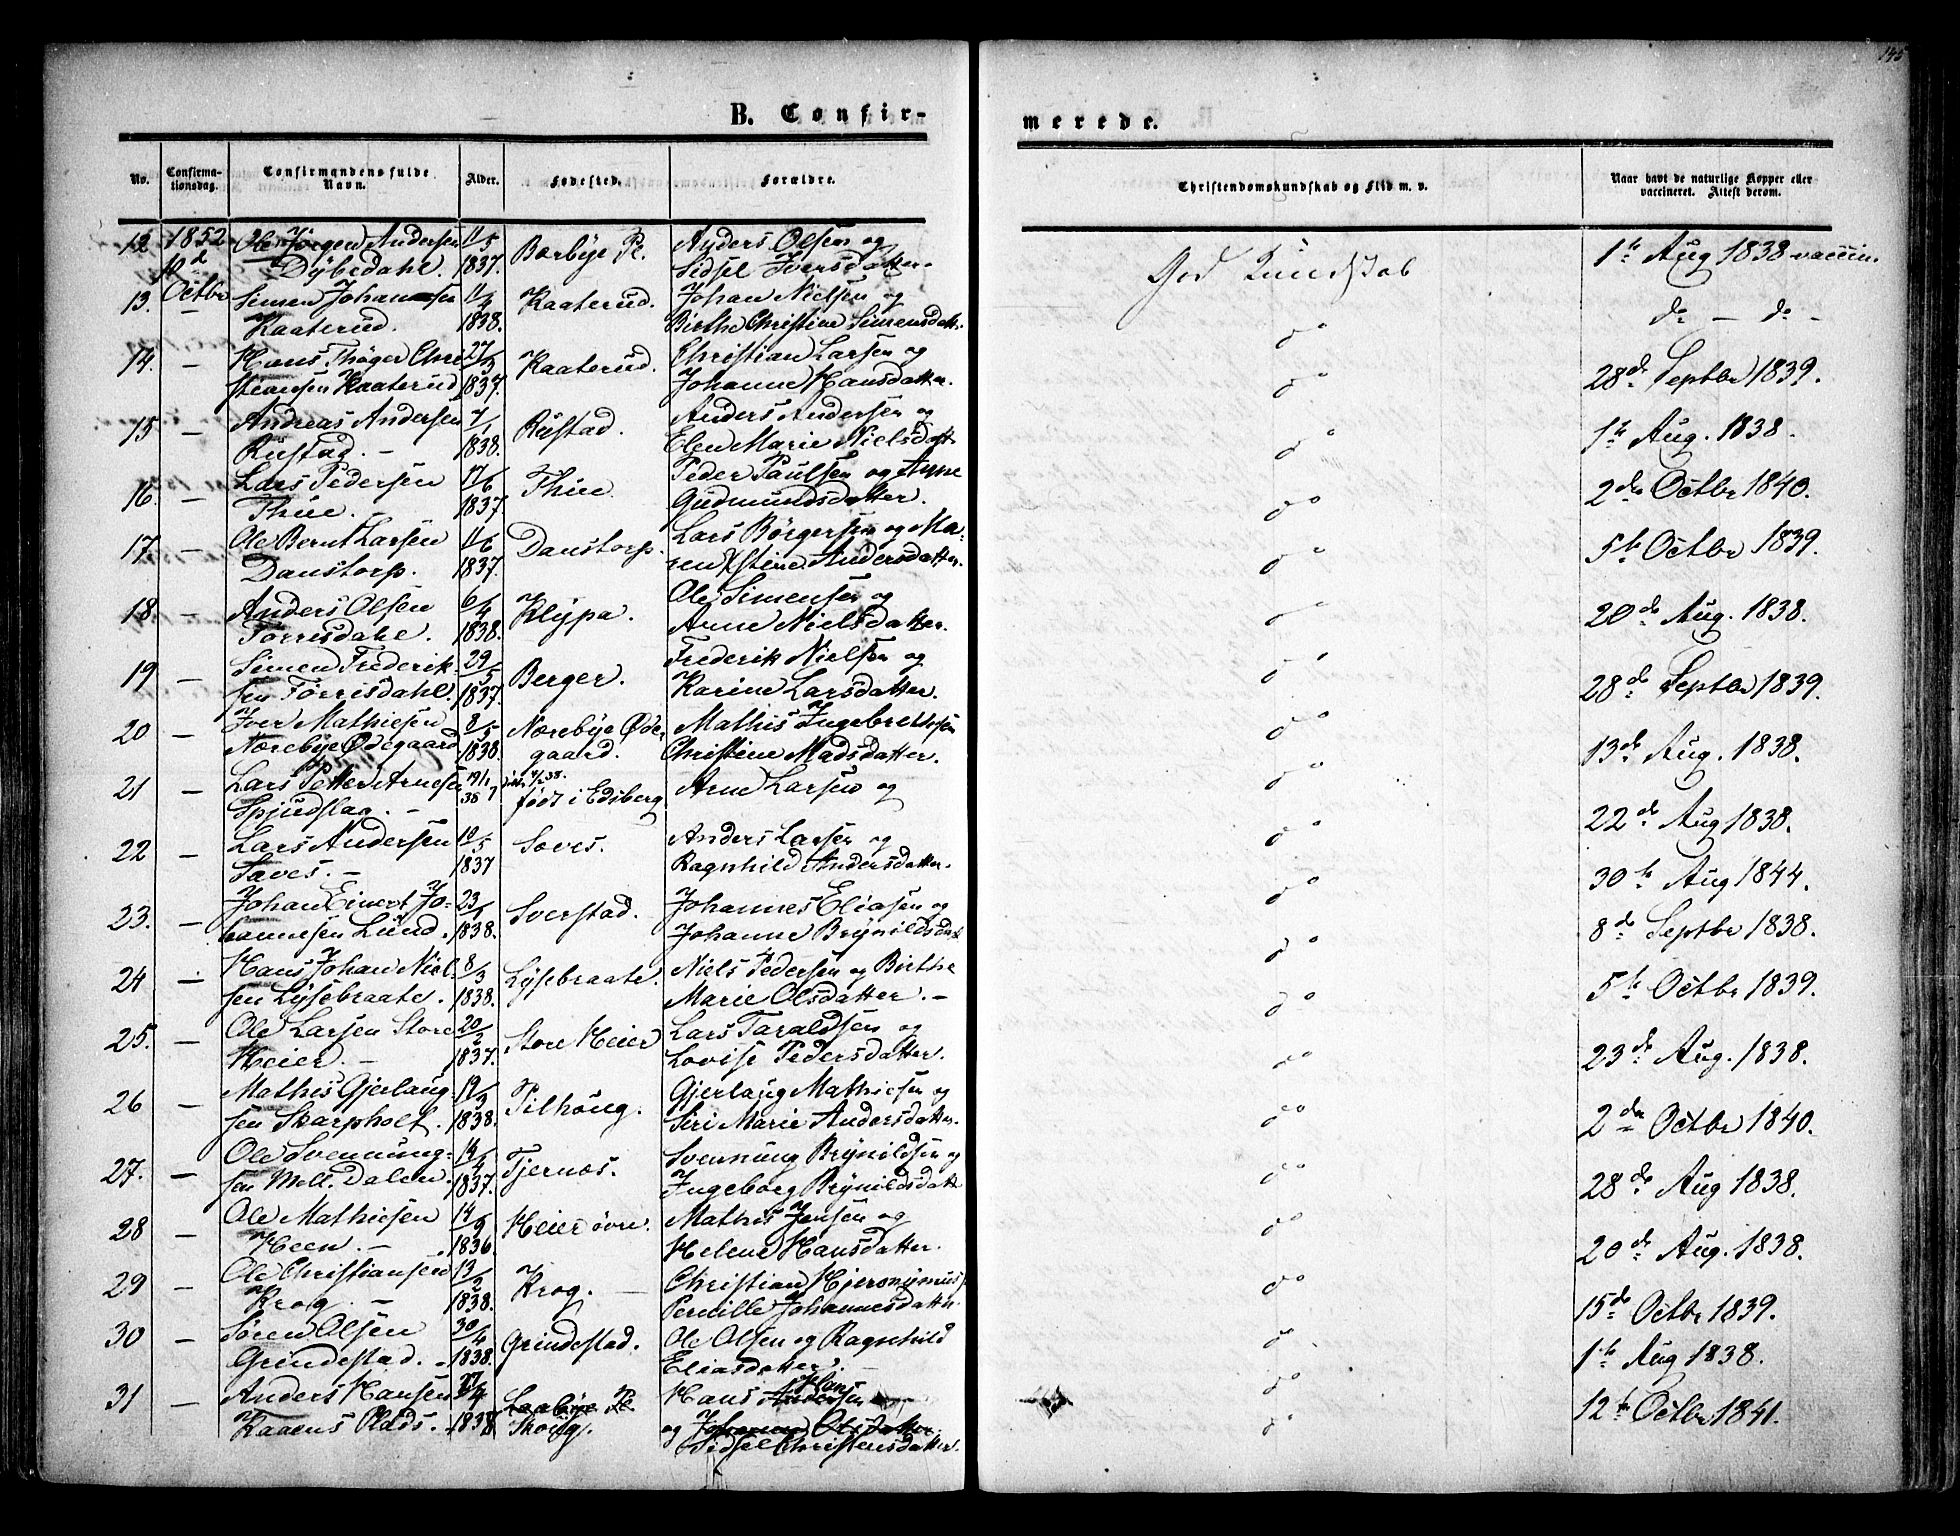 145
B. Confir-
merede.
No.
Confirma-
tionsdag.
Confirmandens fulde
Navn.
Alder.
Fødested.
Forældre.
Christendomskundskab og Flid m. v.
Naar havt de naturlige Kopper eller
vaccineret. Attest derom.
12 1852 Ole Jørgen Andersen 11/5 Borbye Pl. Anders Olsen og God Kundskab 1te Aug 1838 vaccin.
10d Dybedahl. 1837. Sidsel Iversdatter.
13. Octbr Simen Johannesen 11/4 Kaaterud. Johan Nielsen og do do — do -
— Kaaterud. 1838. Birthe Christine Simensdatt.
14. — Hans Thøger Chri 27/3 Kaaterud. Christian Larsen og do 28de Septbr 1839.
stiansen Kaaterud 1837. Johanne Hansdatter.
15 — Andreas Andersen 7/1 Rustad. Anders Andersen og do 1te Aug. 1838.
Rustad. — 1838. Elen Marie Nielsdatt
16. — Lars Pedersen 17/6 Thue. Peder Paulsen og Anne do 2den Octbr 1840.
Thue. — 1837 Gudmundsdatter.
17. — Ole Bernt Larsen 11/6 Danstorp. Lars Børgersen og Ma- do 5te Octbr 1839.
Danstorp. 1837. ren Kstine Andersdatter.
18. — Anders Olsen 6/4 Klypa. Ole Simensen og do 20de Aug. 1838.
Torrisdahl. 1838. Anne Nielsdatter.
19 — Simen Frederik- 29/5 Berger. Frederik Nielsen og do 28de Septbr 1839.
sen Torrisdahl. 1837. Karine Larsdatter.
20 — Iver Mathiesen 8/5 Nærebye Øde Mathis Ingebrethsen do 13de Aug. 1838.
Nærebye Ødegaard 1838 gaard. Christine Madsdatter.
21 — Lars Petter Arnesen 19/1 født i Edsberg Arne Larsen og do 22de Aug 1838.
Spjudslag. — 38
22 — Lars Andersen 10/5 Soves. Anders Larsen og do 30te Aug 1844.
Soves. — 1837 Ragnhild Andersdatter.
23. — Johan Einert Jo- 23/1 Sverstad. Johannes Eliasen og do 8de Septbr 1838.
hannesen Lund. 1838. Johanne Brynildsdatt
24 — Hans Johan Niel- 8/3 Lysebraate. Niels Pedersen og Birthe do 5te Octbr 1839.
sen Lysebraate. 1838. Marie Olsdatter. —
25. — Ole Larsen Store 20/2 Store Heier Lars Taraldsen og do 23de Aug. 1838.
Heier. — 1837. Lovise Pedersdatter.
26 — Mathis Gjerlaug- 19/3 Tilhøug. Gjerlaug Mathiesen og do 2den Octbr 1840.
sen Skarpholt. 1838. Siri Marie Andersdatter.
27. — Ole Svennung- 14/4 Tjernæs. Svennung Brynildsen og do 28de Aug 1838.
sen Mell. Dalen 1837. Ingeborg Brynildsdatt
28 — Ole Mathiesen 14/9 Heier øvre. Mathis Jensen og do 20de Aug. 1838.
Heen. — 1836. Helene Hansdatter.
29 — Ole Christiansen 13/2 Krog. — Christian Hjeronymus do 15de Octbr 1839.
Krog. — 1838. Pernille Johannesdatter.
30 — Søren Olsen 30/4 Grindestad. Ole Olsen og Ragnhild do 1te Aug 1838.
Grindestad. 1838. Eliasdatter.
31 — Anders Hansen 27/4 Hans Andersen do 12te Octbr 1841.
Kaaens Plads. 1838 og Johanne Olsdatter
Sidsel Christensdatter.